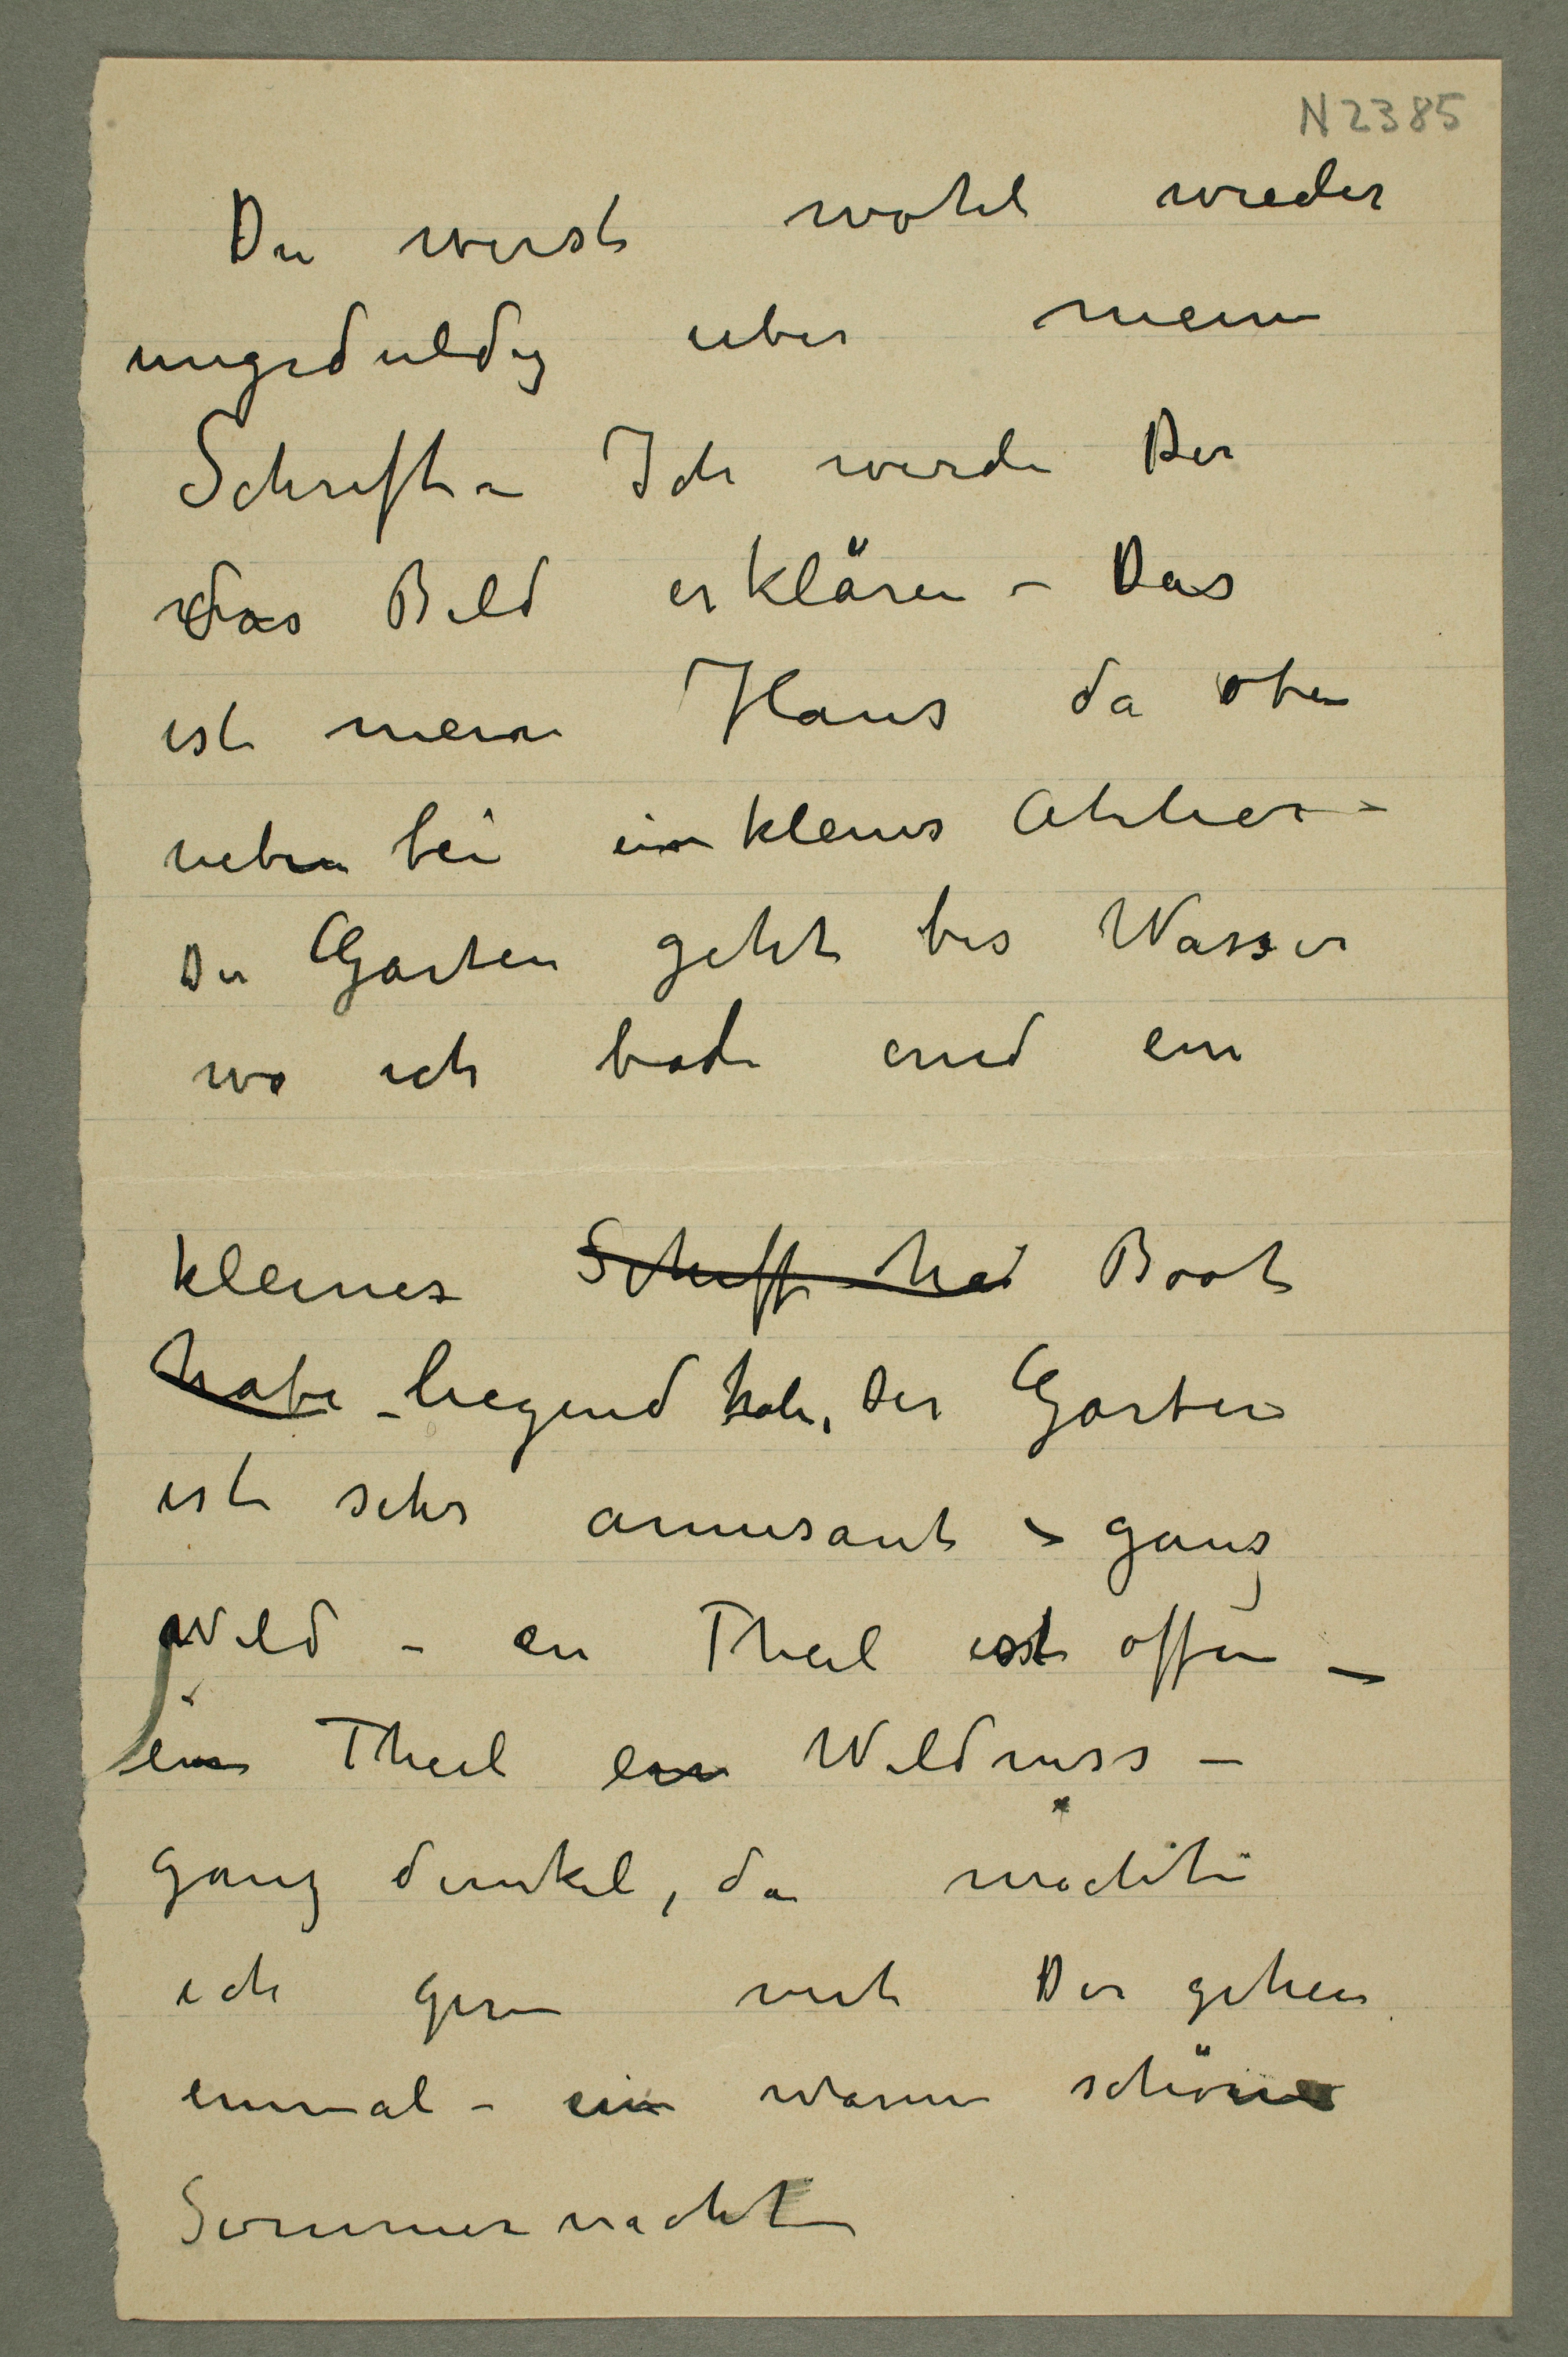 N 2385
Du wirst wohl wieder
ungeduldig über meine
Schrift – Ich werde Dir
das Bild erklären – Das
ist mein Haus da oben
neben bei ein kleines Atelier –
Der Garten geht bis Wasser
wo ich bade und ein
kleines Schiff hab Boot
habe – liegend habe, Der Garten
ist sehr amusant – ganz
Wild – ein Theil ist offen –
ein Theil ein Wildniss –
ganz dunkel, da möchte
ich gern mit Dir gehen
einmal – ein warme schöne
Sommernacht